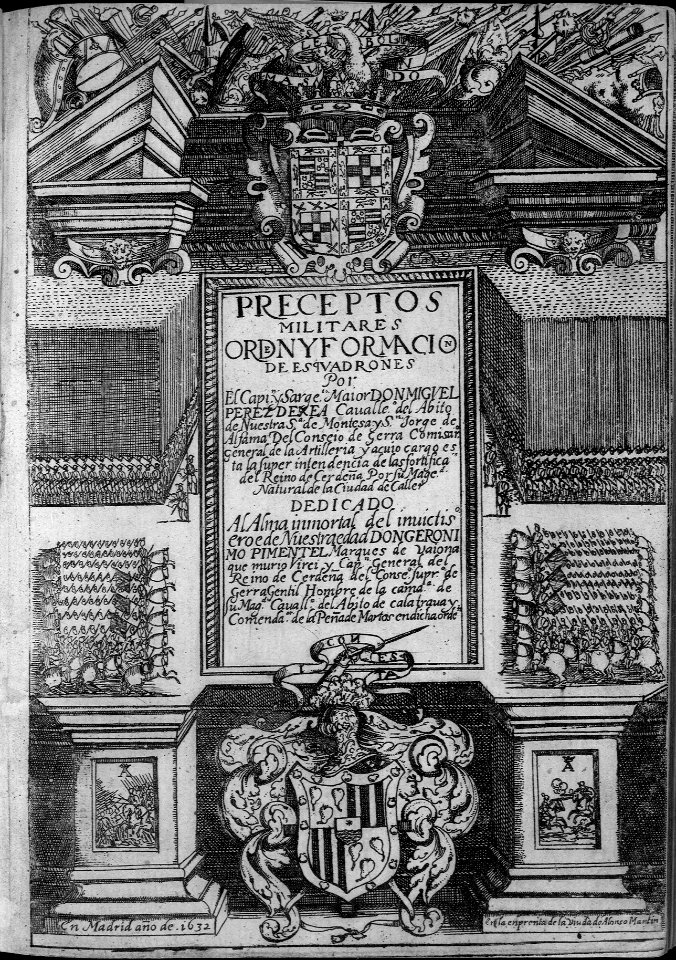 VOLE BOL
DO
PRECEPTOS
MILITARES
ORDN Y FORMACIOn
DE ESQVADRONES
Por
El Capi.n y Sarge.to Maior DON MIGVEL
PEREZ DEXEA Cavalle.o del Abito
de Nuestra S.a de Montesa y S.n Jorge de
Alfama Del Conseio de Gerra Comisario
General de la Artilleria y a cuio cargo es
ta la super intendencia de las fortifica
del Reino de Cerdeña Por su Mage.d
Natural de la Ciudad de Caller
DEDICADO
Al Alma inmortal del invictis
eroe de Nuestra edad DON GERONI
MO PIMENTEL Marques de Vaiona
que murio Virei y Cap.n General del
Reino de Cerdeña del Conse. supr.o de
Gerra Gentil Hombre de la cama.a de
su Mag.d Cavall.o del Abito de calatraua y
Comenda.or de la Peña de Martos en dicha orde
CON
ESTA
En Madrid año de 1632
En la enprenta de la Viuda de Alonso Martin